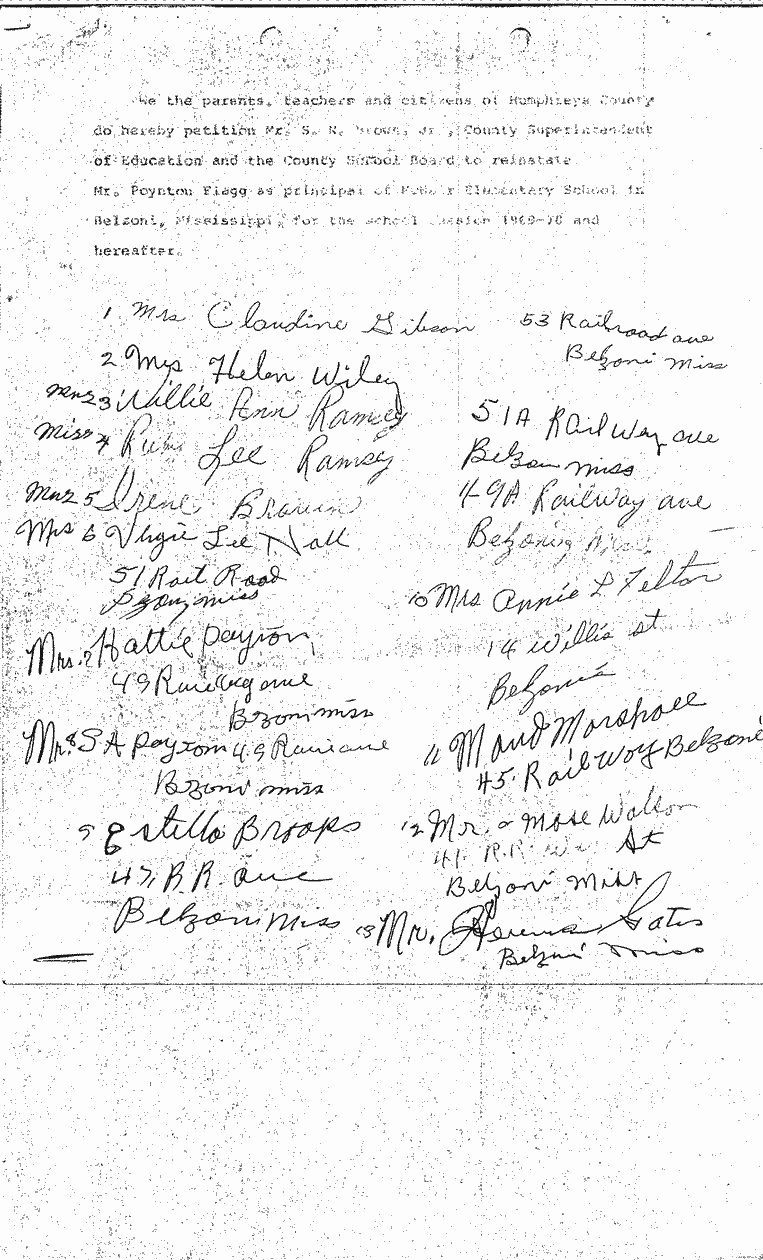 We the parents, teachers and citizens of Humphreys County
do hereby petition Mr. S. N. Brown, Jr., County Superintendent
of Education and the County School Board to reinstate
Mr. Poynton Flagg as principal of Elementary School in
Belzoni, Mississippi, for the school session 1969-70 and
hereafter.
1 Mrs Claudine Gibson 53 Railroad ave
Belzoni Miss
2 Mrs Helen Wiley
Mrs 3 Willie Ann Ramsey
51A Railway ave
Miss 4 Lee Ramsey
Belzoni miss
Mrs 5 Irene Brown
49A Railway ave
Mrs 6 Virgie Lee Nall
Belzoni
51 Rail Road
miss
Mrs. 7 Hattie Payton
49 ave
Bzoni miss
Mr. 8 S A Payton 49 ave
Bzoni miss
9 Estella Broops
47 R.R. ave
Belzoni Miss
10 Mrs Annie L Felton
14 Willis st
Belzoni
11 Maud Marshall
45. Railway Belzoni
12 Mr. Mose Watson
R.R. St
Belzoni Miss
13 Mr. Gates
Belzoni Miss